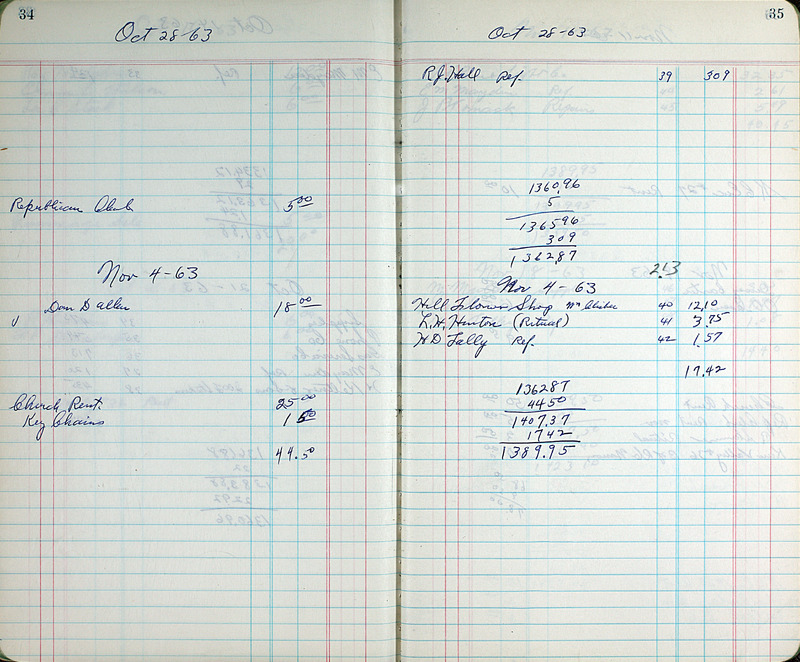 34
Oct 28-63
Republican Club 5.00
Nov 4-63
Don Dallu 18.00
Church Rent. 25.00
Key Chains 1.50
44.50
35
Oct 28-63
R.J. Hall Ref. 39 309
1360.96
5
1365.96
309
1362.87
213
Nov 4-63
Hill Flower Shop 40 12.10
L.H. Hinton (Ritual) 41 3.75
W D Lally Ref. 42 1.57
17.42
1362.87
44.50
1407.37
17.42
1389.95